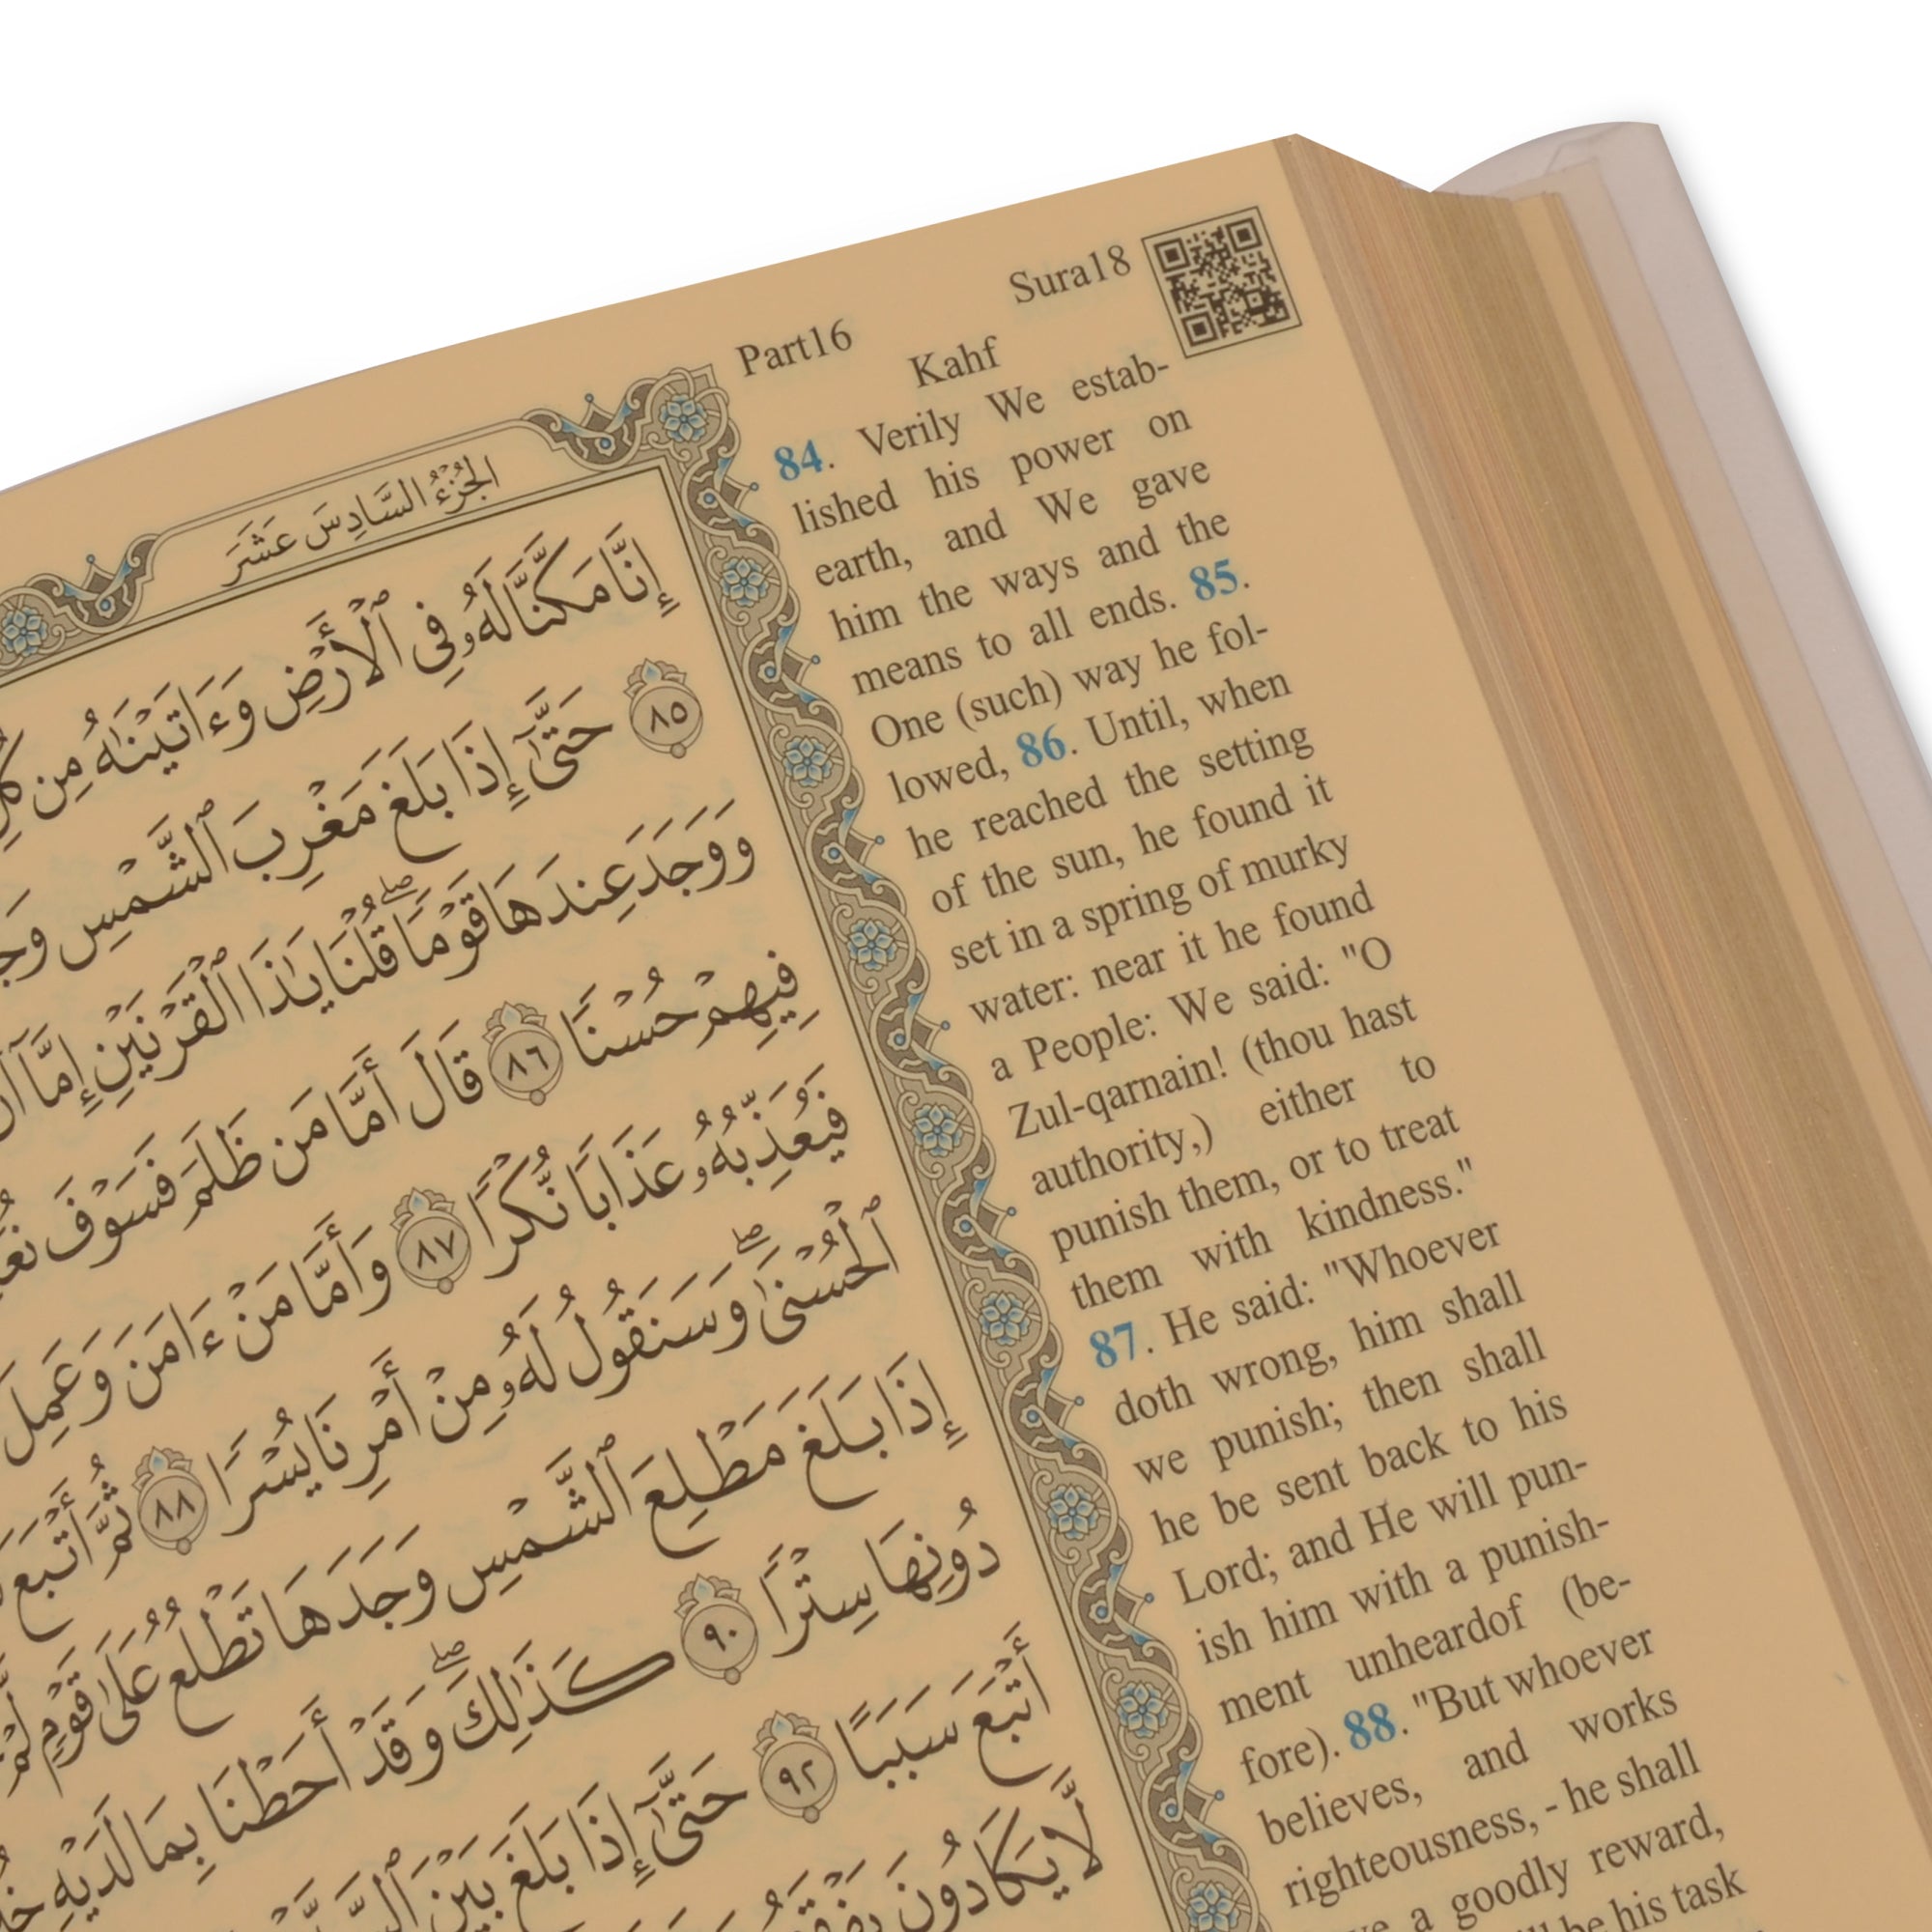 Part16
Sura18
Kahf
84. Verily We estab-
lished his power on
earth, and We gave
him the ways and the
means to all ends. 85.
One (such) way he fol-
lowed, 86. Until, when
he reached the setting
of the sun, he found it
set in a spring of murky
water: near it he found
a People: We said: "O
Zul-qarnain! (thou hast
authority,) either to
punish them, or to treat
them with kindness."
87. He said: "Whoever
doth wrong, him shall
we punish; then shall
he be sent back to his
Lord; and He will pun-
ish him with a punish-
ment unheardof (be-
fore). 88. "But whoever
believes, and works
righteousness, - he shall
a goodly reward,
be his task
الجُزْءُ السَّادِسَ عَشَرَ
إِنَّا مَكَّنَّا لَهُۥ فِى ٱلْأَرْضِ وَءَاتَيْنَٰهُ مِن
٨٥ حَتَّىٰٓ إِذَا بَلَغَ مَغْرِبَ ٱلشَّمْسِ
وَوَجَدَ عِندَهَا قَوْمًا ۖ قُلْنَا يَٰذَا ٱلْقَرْنَيْنِ إِمَّآ
فِيهِمْ حُسْنًا ٨٦ قَالَ أَمَّا مَن ظَلَمَ فَسَوْفَ
فَيُعَذِّبُهُۥ عَذَابًا نُّكْرًا ٨٧ وَأَمَّا مَنْ ءَامَنَ وَعَمِلَ
ٱلْحُسْنَىٰ ۖ وَسَنَقُولُ لَهُۥ مِنْ أَمْرِنَا يُسْرًا ٨٨ ثُمَّ أَتْبَعَ
إِذَا بَلَغَ مَطْلِعَ ٱلشَّمْسِ وَجَدَهَا تَطْلُعُ عَلَىٰ قَوْمٍ
دُونِهَا سِتْرًا ٩٠ كَذَٰلِكَ ۖ وَقَدْ أَحَطْنَا بِمَا لَدَيْهِ
أَتْبَعَ سَبَبًا ٩٢ حَتَّىٰٓ إِذَا بَلَغَ بَيْنَ
لَّا يَكَادُونَ